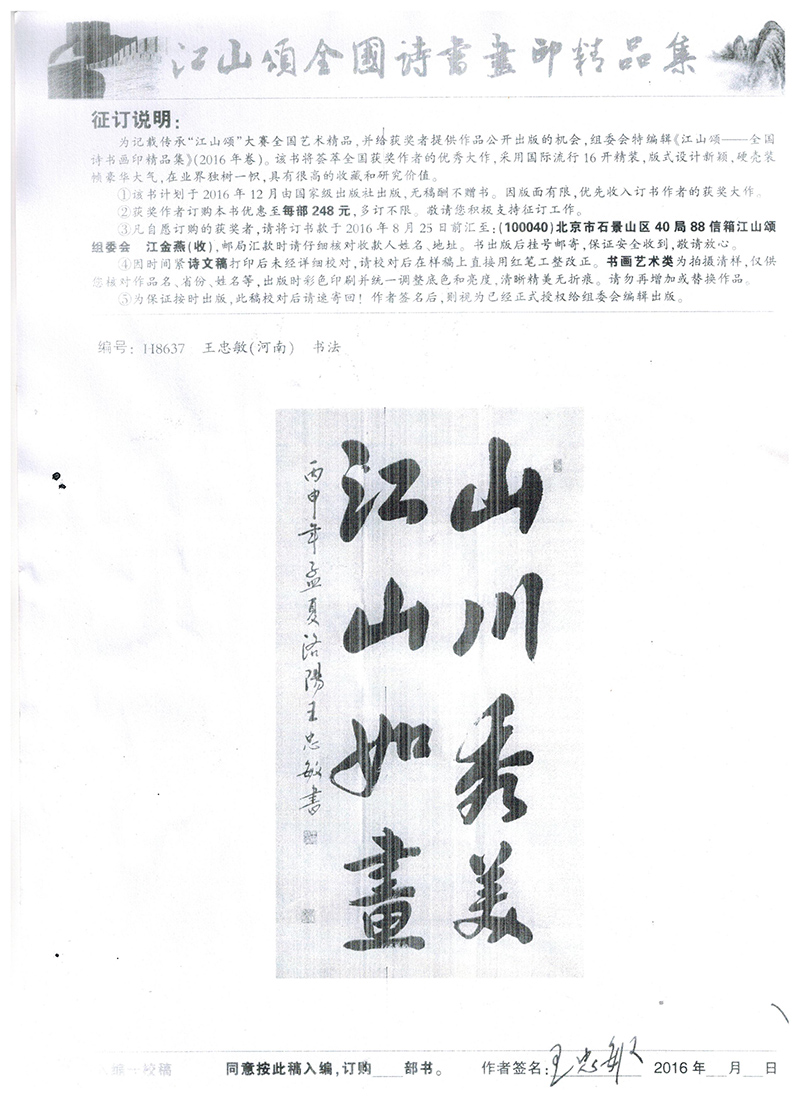 江山頌全國詩書畫印精品集
征订说明：
为记载传承“江山颂”大赛全国艺术精品，并给获奖者提供作品公开出版的机会，组委会特编辑《江山颂——全国
诗书画印精品集》(2016年卷)。该书将荟萃全国获奖作者的优秀大作，采用国际流行16开精装，版式设计新颖，硬壳装
帧豪华大气，在业界独树一帜，具有很高的收藏和研究价值。
①该书计划于2016年12月由国家级出版社出版，无稿酬不赠书。因版面有限，优先收入订书作者的获奖大作。
②获奖作者订购本书优惠至每部248元，多订不限。敬请您积极支持征订工作。
③凡自愿订购的获奖者，请将订书款于2016年8月25日前汇至：(100040)北京市石景山区40局88信箱江山颂
组委会 江金燕(收)，邮局汇款时请仔细核对收款人姓名、地址。书出版后挂号邮寄，保证安全收到，敬请放心。
④因时间紧诗文稿打印后未经详细校对，请校对后在样稿上直接用红笔工整改正。书画艺术类为拍摄清样，仅供
您核对作品名、省份、姓名等，出版时彩色印刷并统一调整底色和亮度，清晰精美无折痕。请勿再增加或替换作品。
⑤为保证按时出版，此稿校对后请速寄回！作者签名后，则视为已经正式授权给组委会编辑出版。
编号：H8637 王忠敏(河南) 书法
山川秀美
江山如畫
丙申年孟夏洛陽王忠敏書
入编一校稿 同意按此稿入编，订购___部书。 作者签名：王忠敏 2016年__月__日